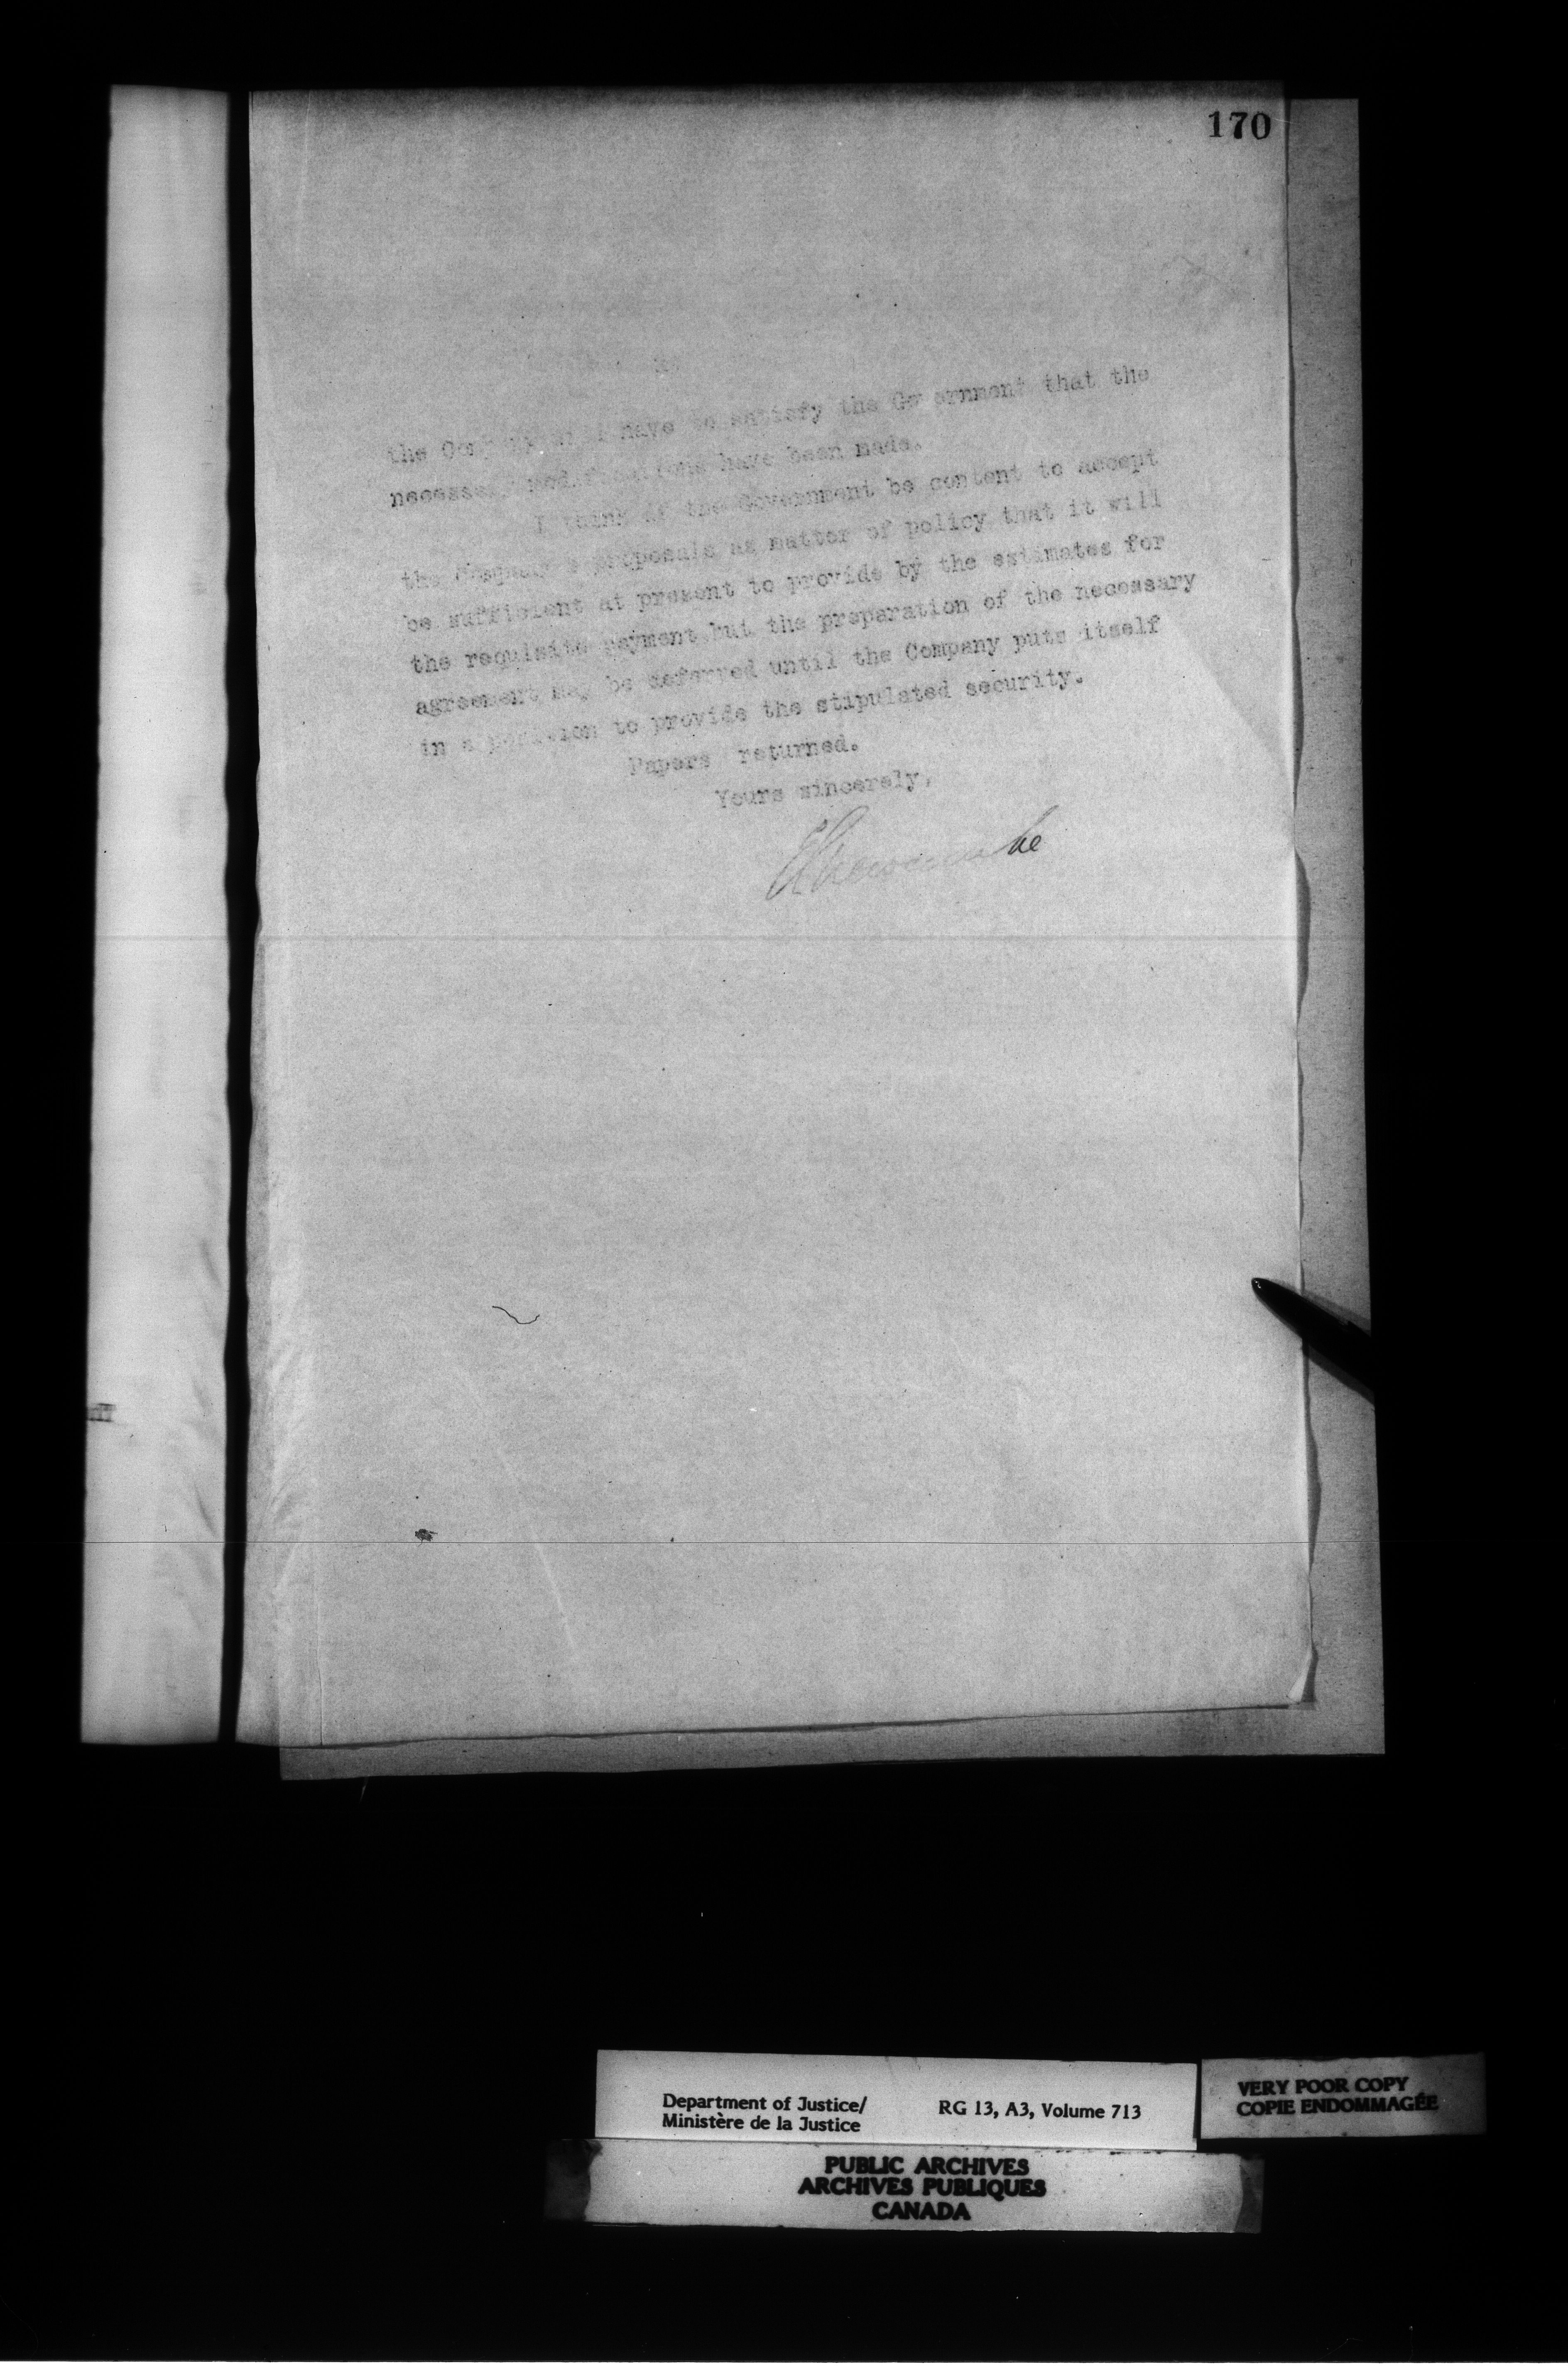 170
the Company will have to satisfy the Government that the
necessary modifications have been made.
I think if the Government be content to accept
the Company's proposals as matter of policy that it will
be sufficient at present to provide by the estimates for
the requisite payment but the preparation of the necessary
agreement may be deferred until the Company puts itself
in a position to provide the stipulated security.
Papers returned.
Yours sincerely,
E L Newcombe
Department of Justice/ RG 13, A3, Volume 713
Ministère de la Justice
VERY POOR COPY
COPIE ENDOMMAGÉE
PUBLIC ARCHIVES
ARCHIVES PUBLIQUES
CANADA